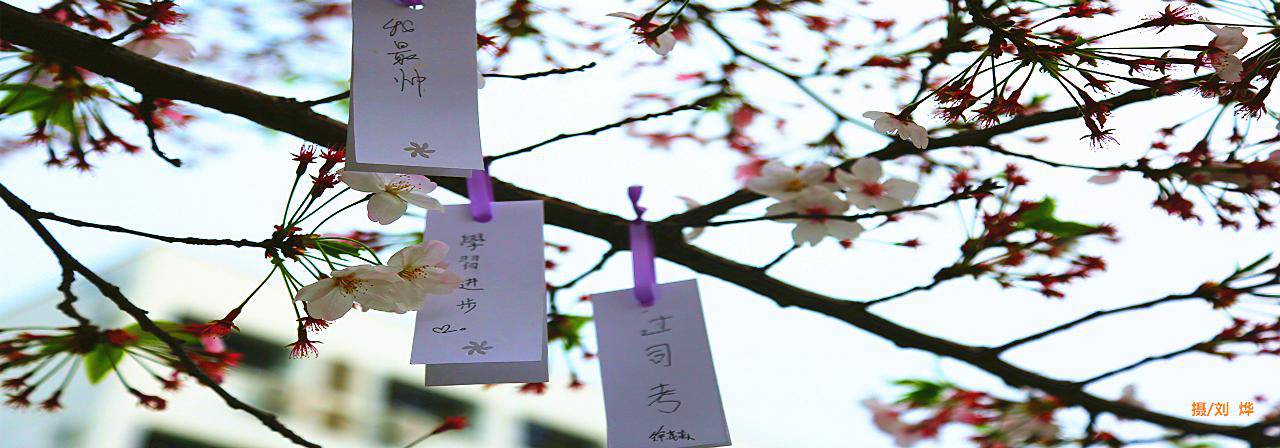 我最帅
學習进步
过司考
摄/刘 烨